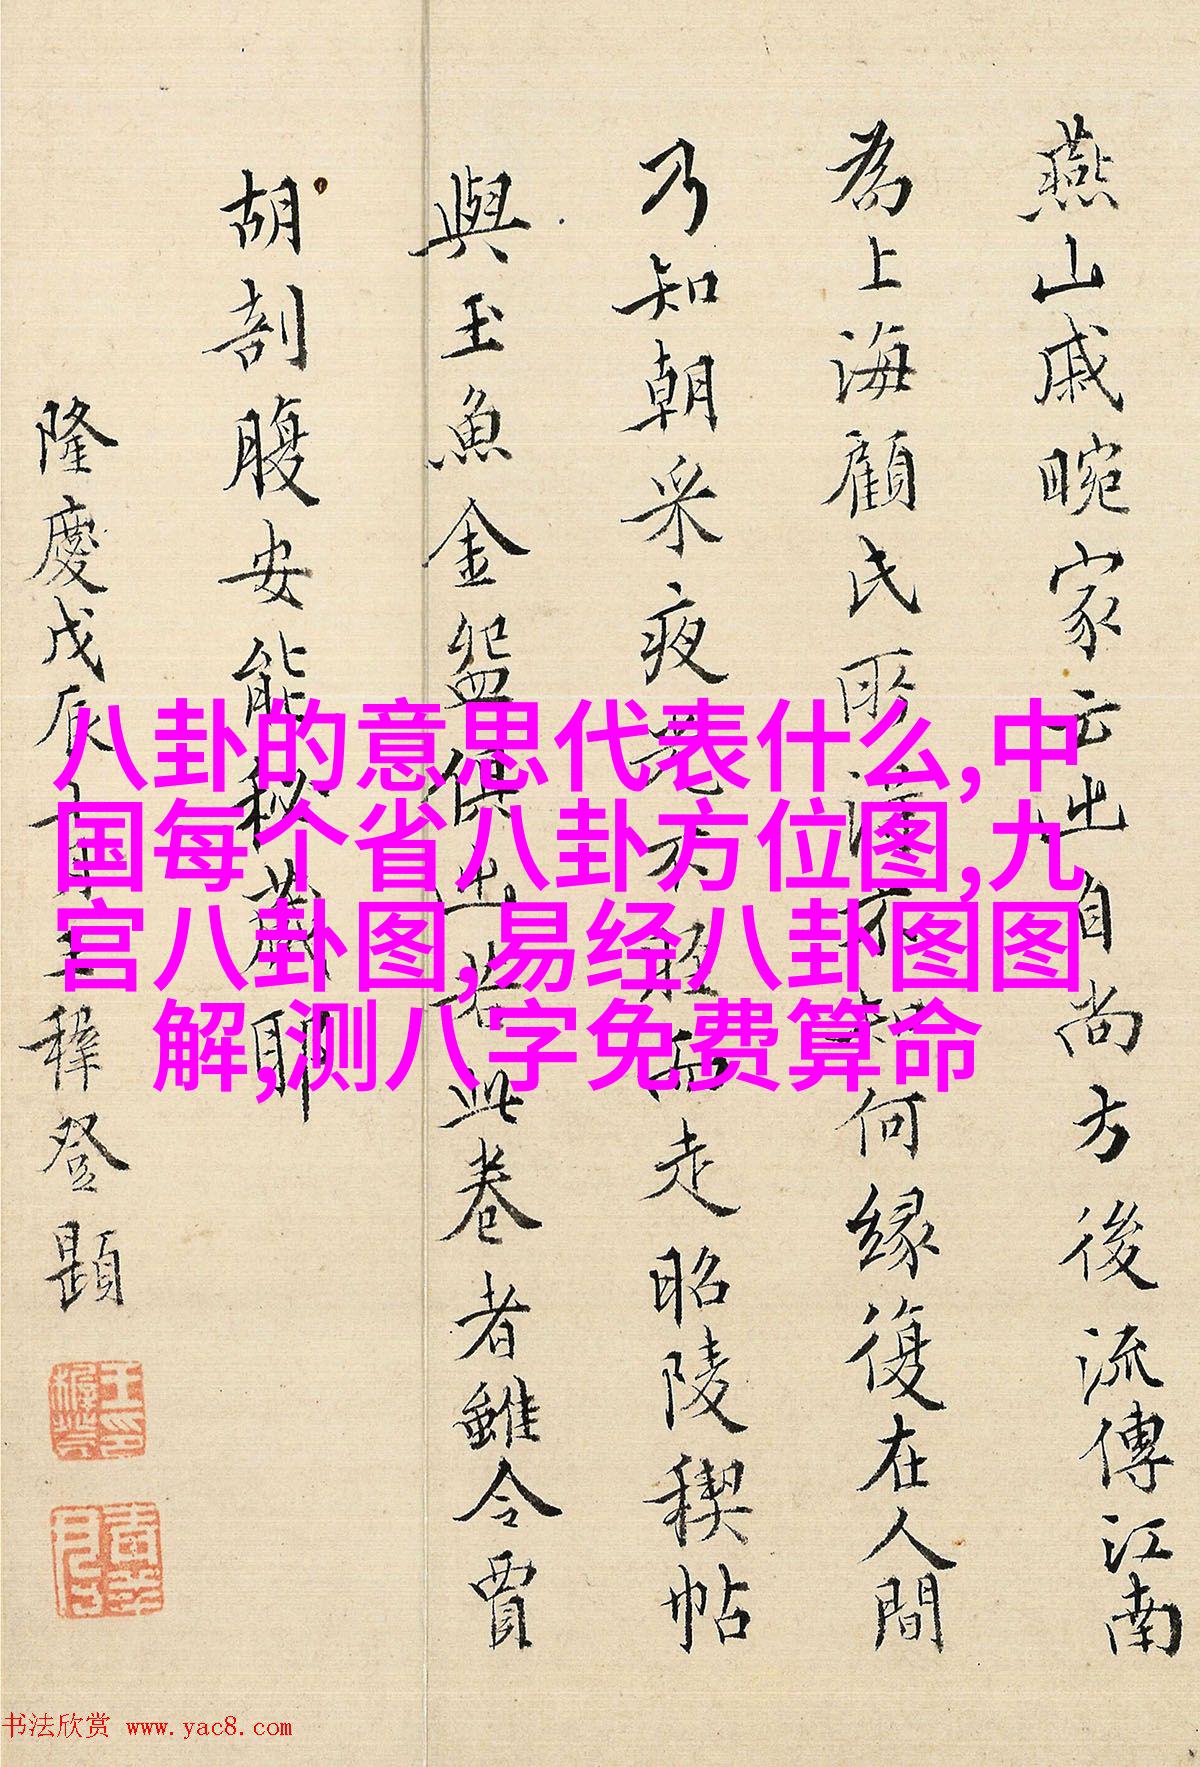 燕山戚畹家云出自尚方後流傳江南
為上海顧氏所
何緣復在人間
乃知朝采夜
走昭陵稧帖
與玉魚金盌俱出若此卷者雖令賈
胡剖腹安能秘藏耶
隆慶戊辰
穉登題
八卦的意思代表什么,中
国每个省八卦方位图,九
宫八卦图,易经八卦图图
解,测八字免费算命
书法欣赏 www.yac8.com